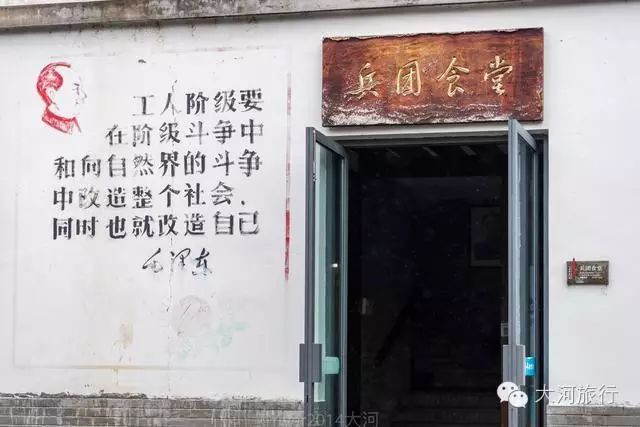 工人阶级要
在阶级斗争中
和向自然界的斗争
中改造整个社会、
同时也就改造自己
毛泽东
兵团食堂
兵团食堂
大河旅行
2014大河